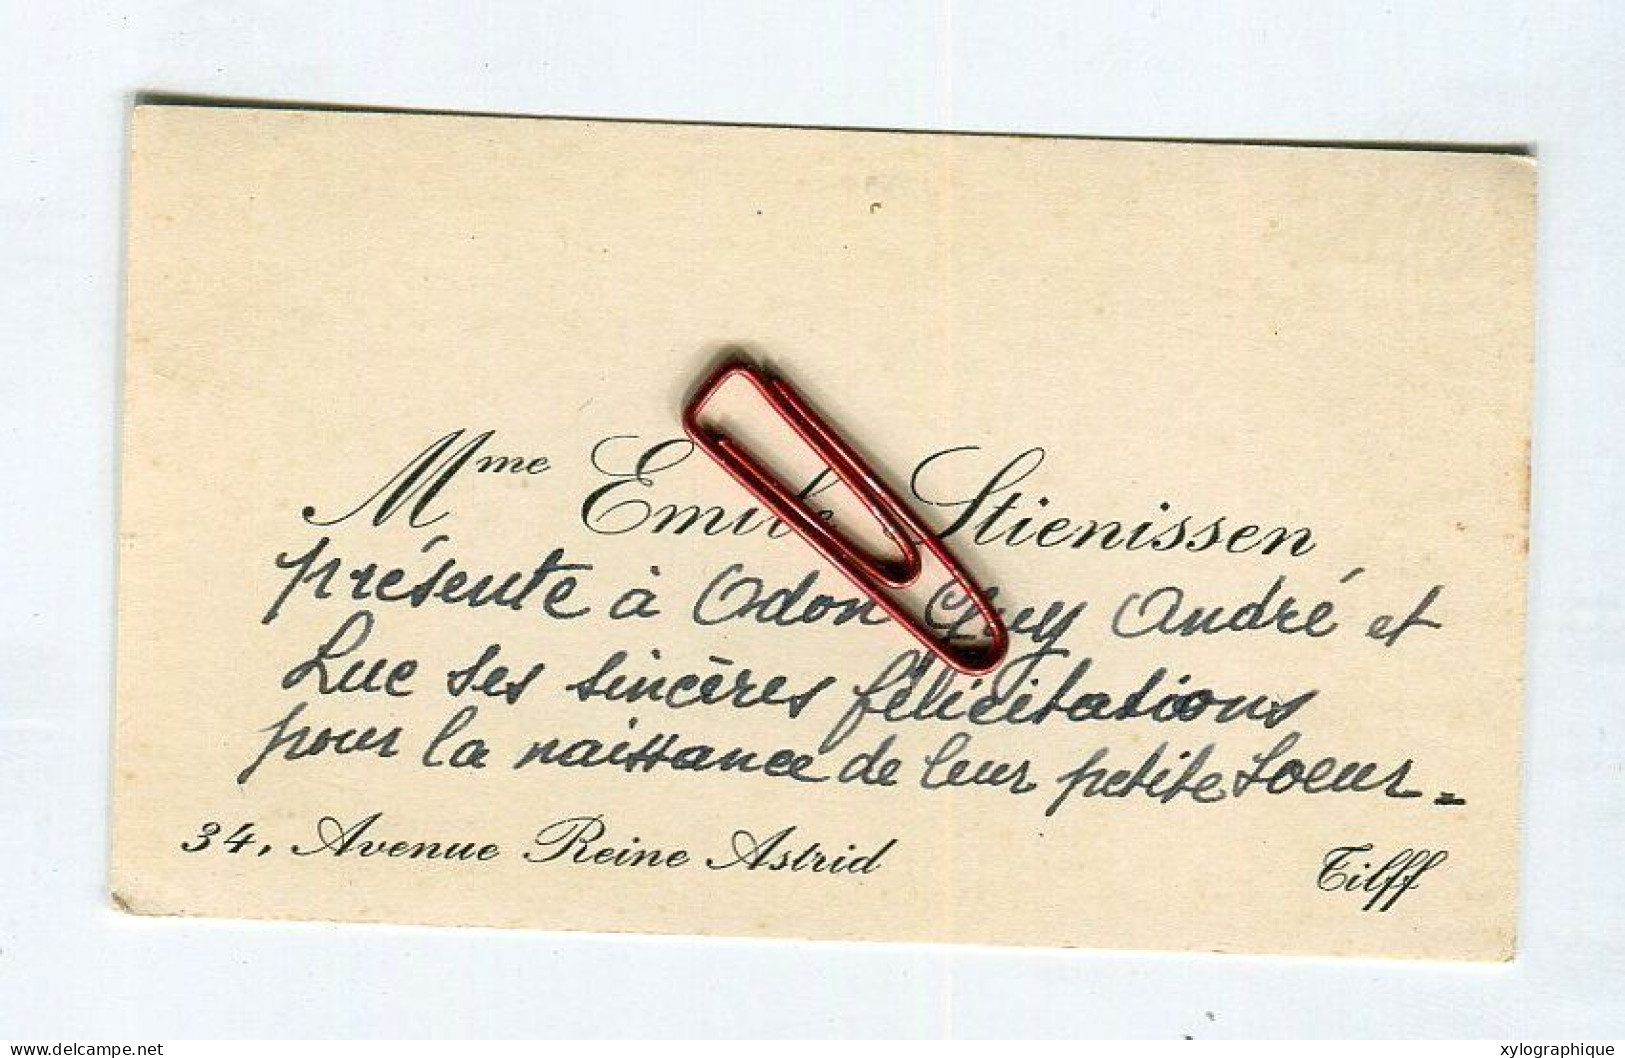 Mme Emile Stienissen
présente à Odon Guy André et
Luc ses sincères félicitations
pour la naissance de leur petite soeur.
34, Avenue Reine Astrid Tilff
www.delcampe.net
xylographique